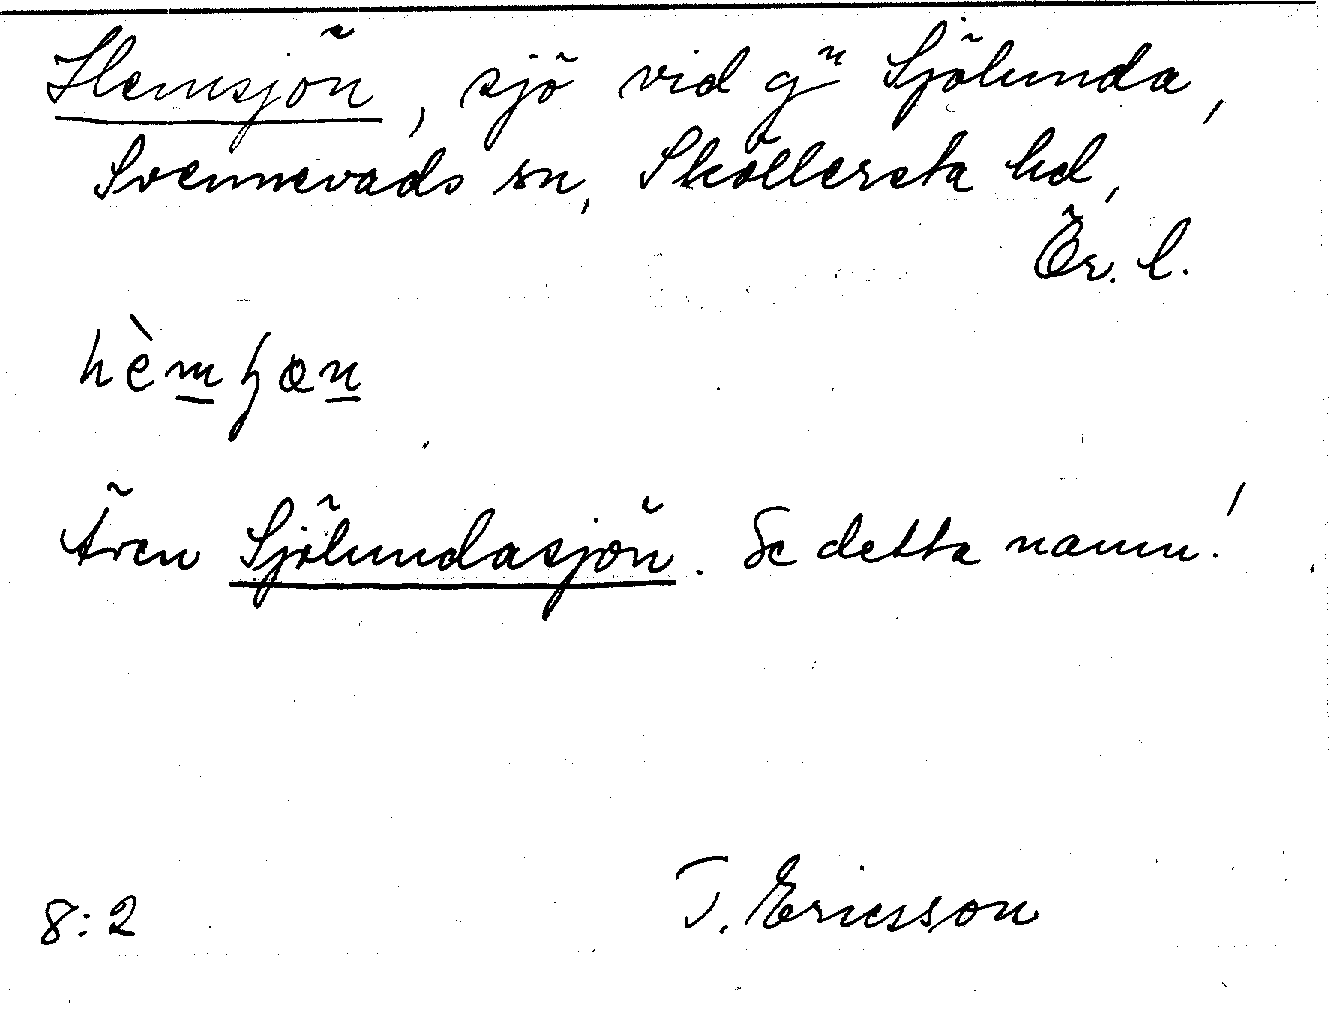 Hemsjön, sjö vid gn Sjölunda,
Svennevads sn, Sköllersta hd,
Ör. l.
hèmʒœn
Även Sjölundasjön. Se detta namn!
8:2
T. Ericsson